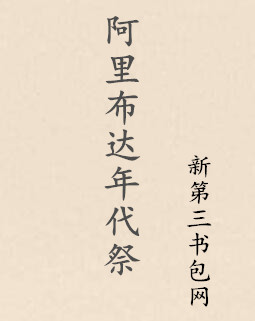 阿里布达年代祭
新第三书包网